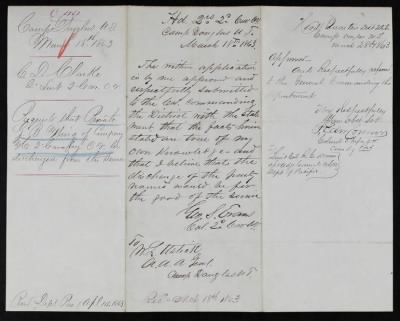 Camp Douglas U.T.
March 18th 1863
C. D. Clarke
Co. 2nd Cav. C.V.
Requests that Private
of Company
2 Cavalry C.V. be
discharged from the Service
Rec'd Dept. Pac. Apl. 1863
Hd. Qrs. 2d. Cav. C.V.
Camp Douglas U.T.
March 18th 1863.
The within application
is by me approved and
respectfully submitted
to the Col. commanding
the District with the state
ment that the facts herein
stated are some of my
own knowledge and
that I believe that the
discharge of the party
named would be for
the good of the service
Geo. S. Evans
Col. 2d Cav. C.V.
To
A. A. A. Genl.
Camp Douglas U.T.
Head Quarters Dist. Utah
Camp Douglas U.T.
March 28th 1863
Approved
and Respectfully referred
to the General Commanding the
Department
Very Respectfully
Your Obt. Svt.
P. Edw. Connor
Dept. of Pacific